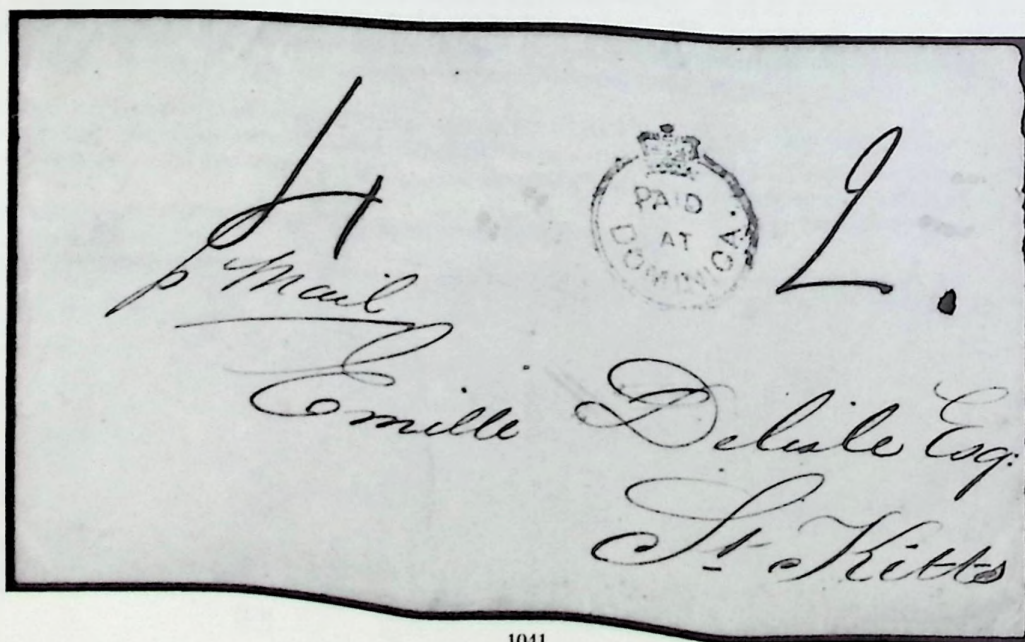 4
PAID
AT
DOMINICA.
2.
p Mail
Emille Delisle Esq:
St. Kitts
1041